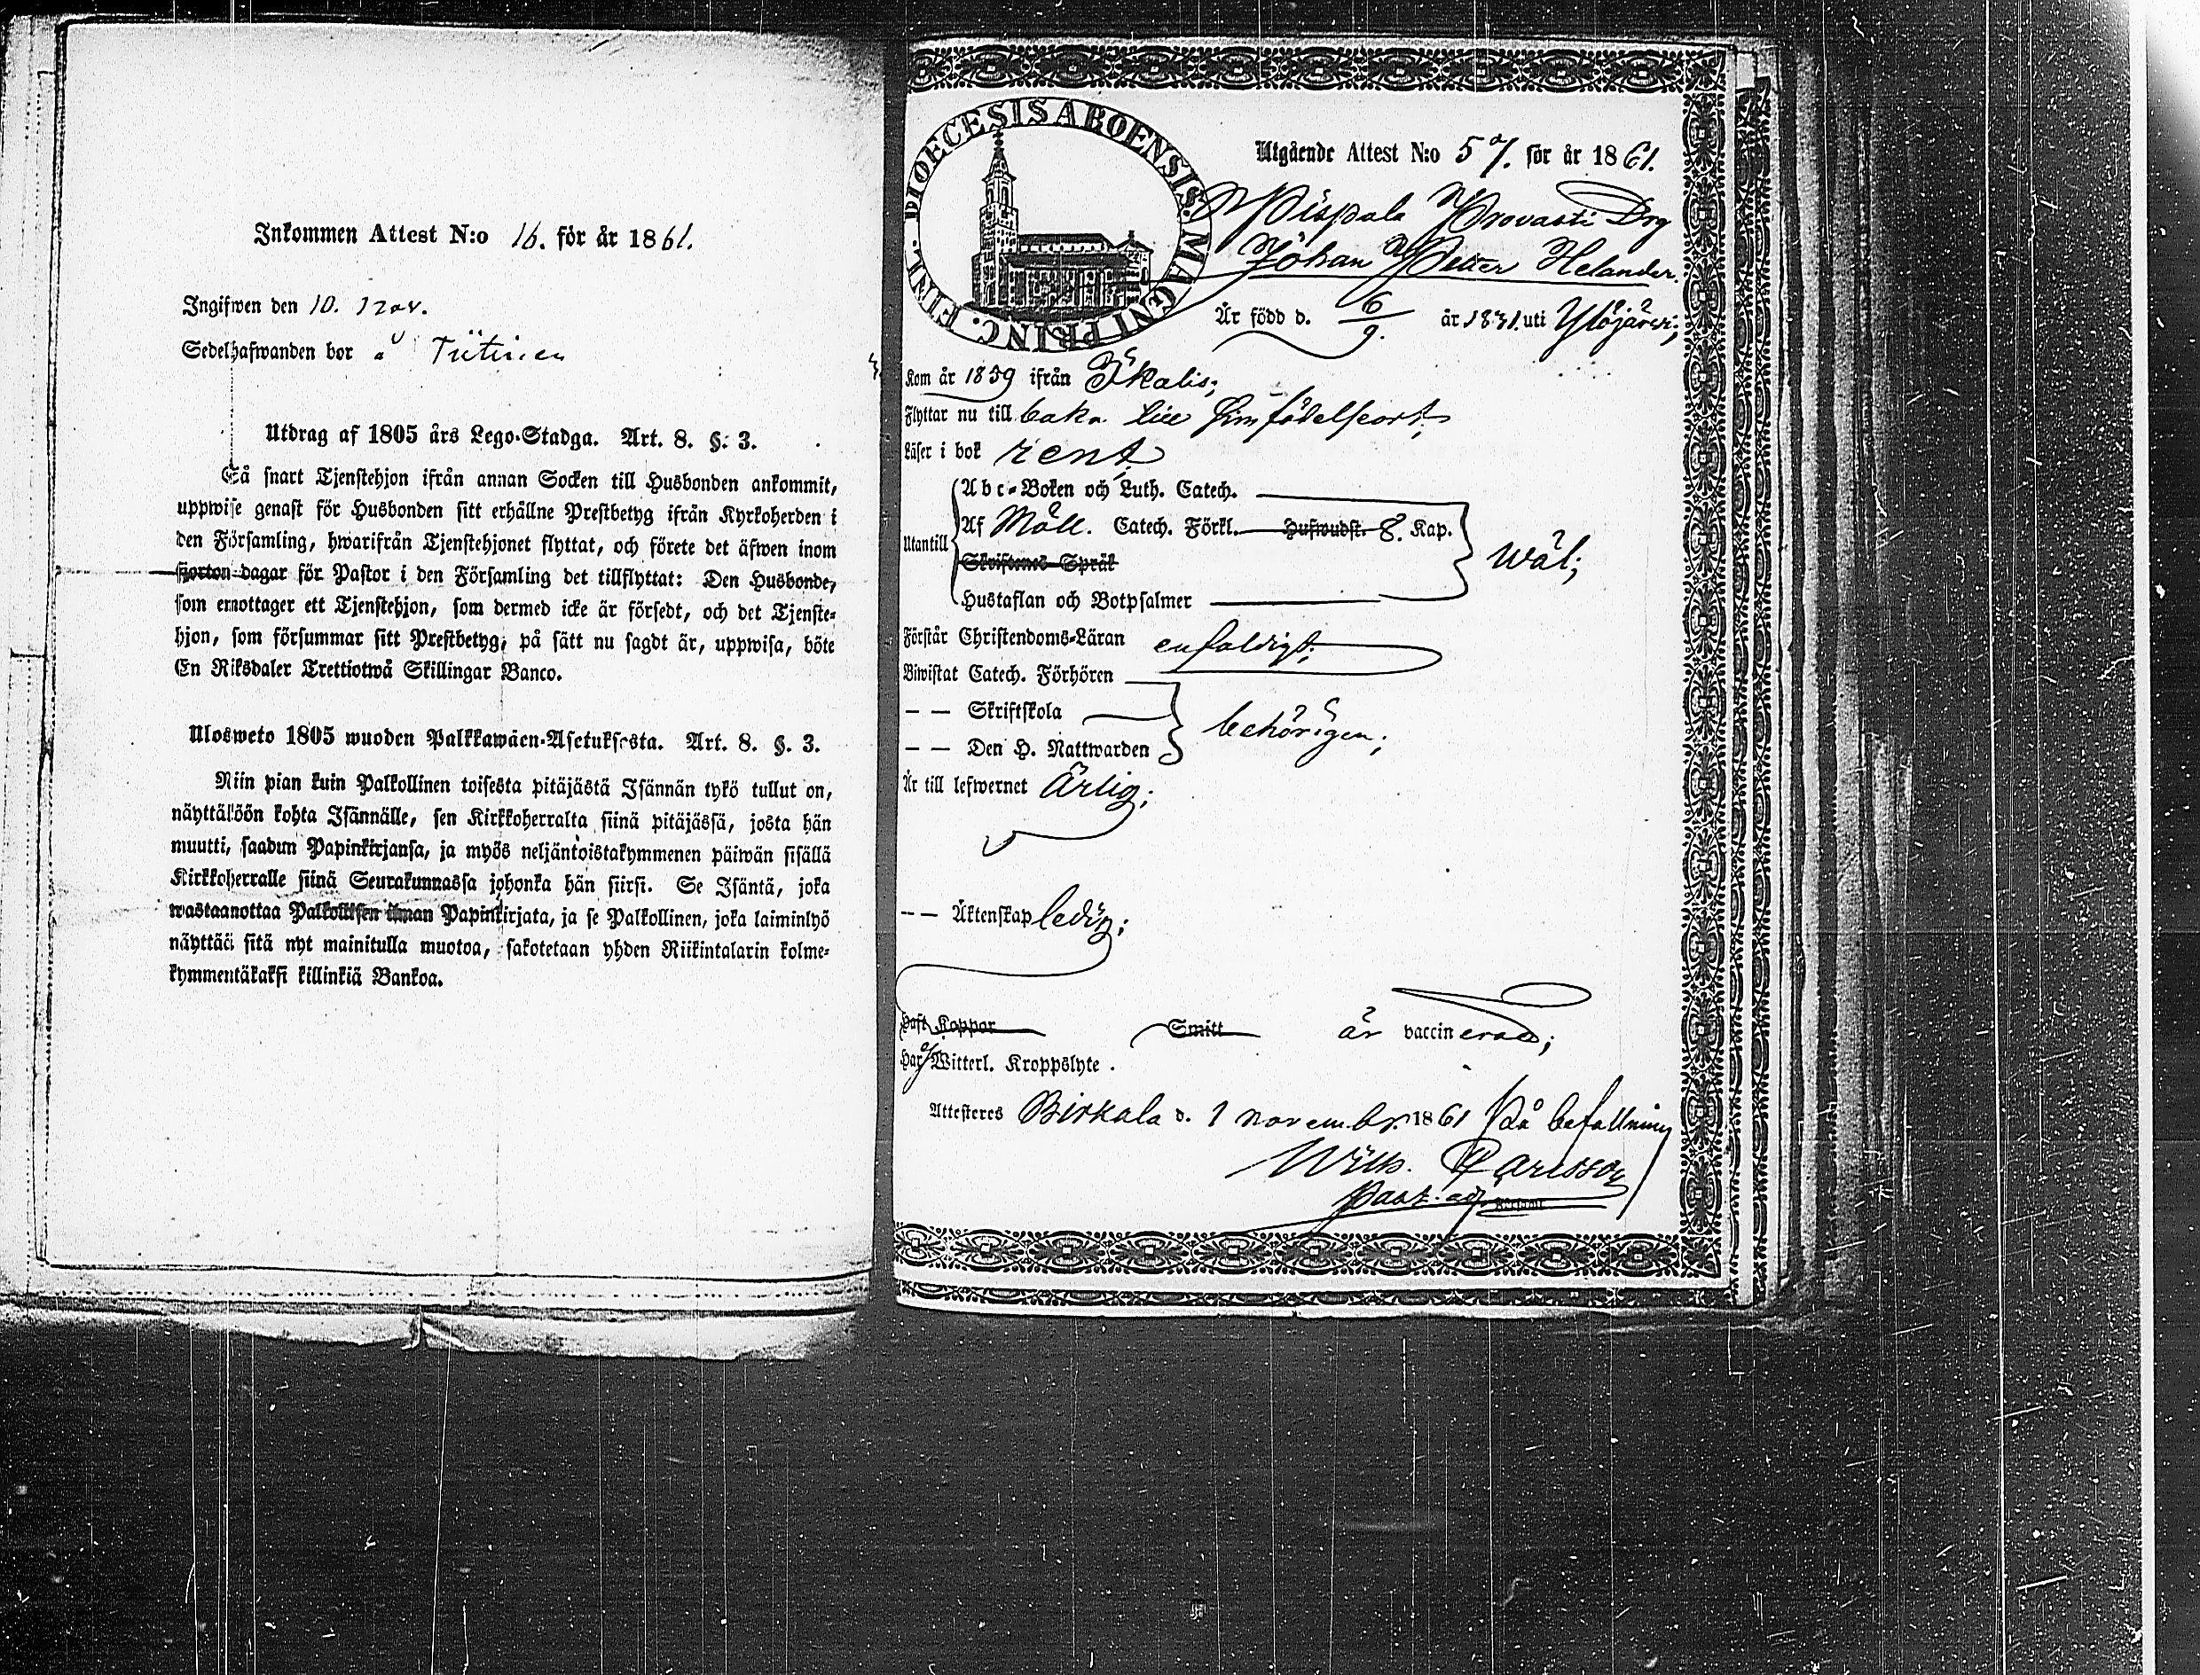 Inkommen Attest N:o 16. för år 1861.
Ingifwen den 10. Nov.
Sedelhafwanden bor å
Utdrag af 1805 års Lego-Stadga. Art. 8. §. 3.
Så snart Tjenstehjon ifrån annan Socken till Husbonden ankommit,
uppwise genast för Husbonden sitt erhållne Prestbetyg ifrån Kyrkoherden i
den Församling, hwarifrån Tjenstehjonet flyttat, och förete det äfwen inom
fjorton dagar för Pastor i den Församling det tillflyttat: Den Husbonde,
som emottager ett Tjenstehjon, som dermed icke är försedt, och det Tjenste-
hjon, som försummar sitt Prestbetyg, på sätt nu sagdt är, uppwisa, böte
En Riksdaler Trettiotwå Skillingar Banco.
Ulosweto 1805 wuoden Palkkawäen-Asetuksesta. Art. 8. §. 3.
Niin pian kuin Palkollinen toisesta pitäjästä Isännän tykö tullut on,
näyttäköön kohta Isännälle, sen Kirkkoherralta siinä pitäjässä, josta hän
muutti, saadun Papinkirjansa, ja myös neljäntoistakymmenen päiwän sisällä
Kirkkoherralle siinä Seurakunnassa johonka hän siirsi. Se Isäntä, joka
wastaanottaa Palkollisen ilman Papinkirjata, ja se Palkollinen, joka laiminlyö
näyttää sitä nyt mainitulla muotoa, sakotetaan yhden Riikintalarin kolme-
kymmentäkaksi killinkiä Bankoa.
DIOECESIS ABOENSIS. MAGNI PRINC. FINL.
Utgående Attest N:o 57. för år 1861.
Pispala Provasti Drg
Johan Petter Helander.
Är född d. 6/9. år 1831. uti Ylöjärvi;
Kom år 1859 ifrån Ikalis;
Flyttar nu till baka till sin födelseort;
Läser i bok rent;
Abc-Boken och Luth. Catech.
Utantill Af Möll. Catech. Förkl. Hufwudst. 8. Kap. wäl;
Skriftenes Språk
Hustaflan och Botpsalmer
Förstår Christendoms-Läran enfaldigt;
Biwistat Catech. Förhören
— — Skriftskola behörigen;
— — Den H. Nattwarden
Är till lefwernet Ärlig;
— — Äktenskap ledig;
Haft Koppor Smitt är vaccinerad;
Har ej Witterl. Kroppslyte.
Attesteres Birkala d. 1 november 1861 På befallning
Wilh. Carlsson
Past. adj.